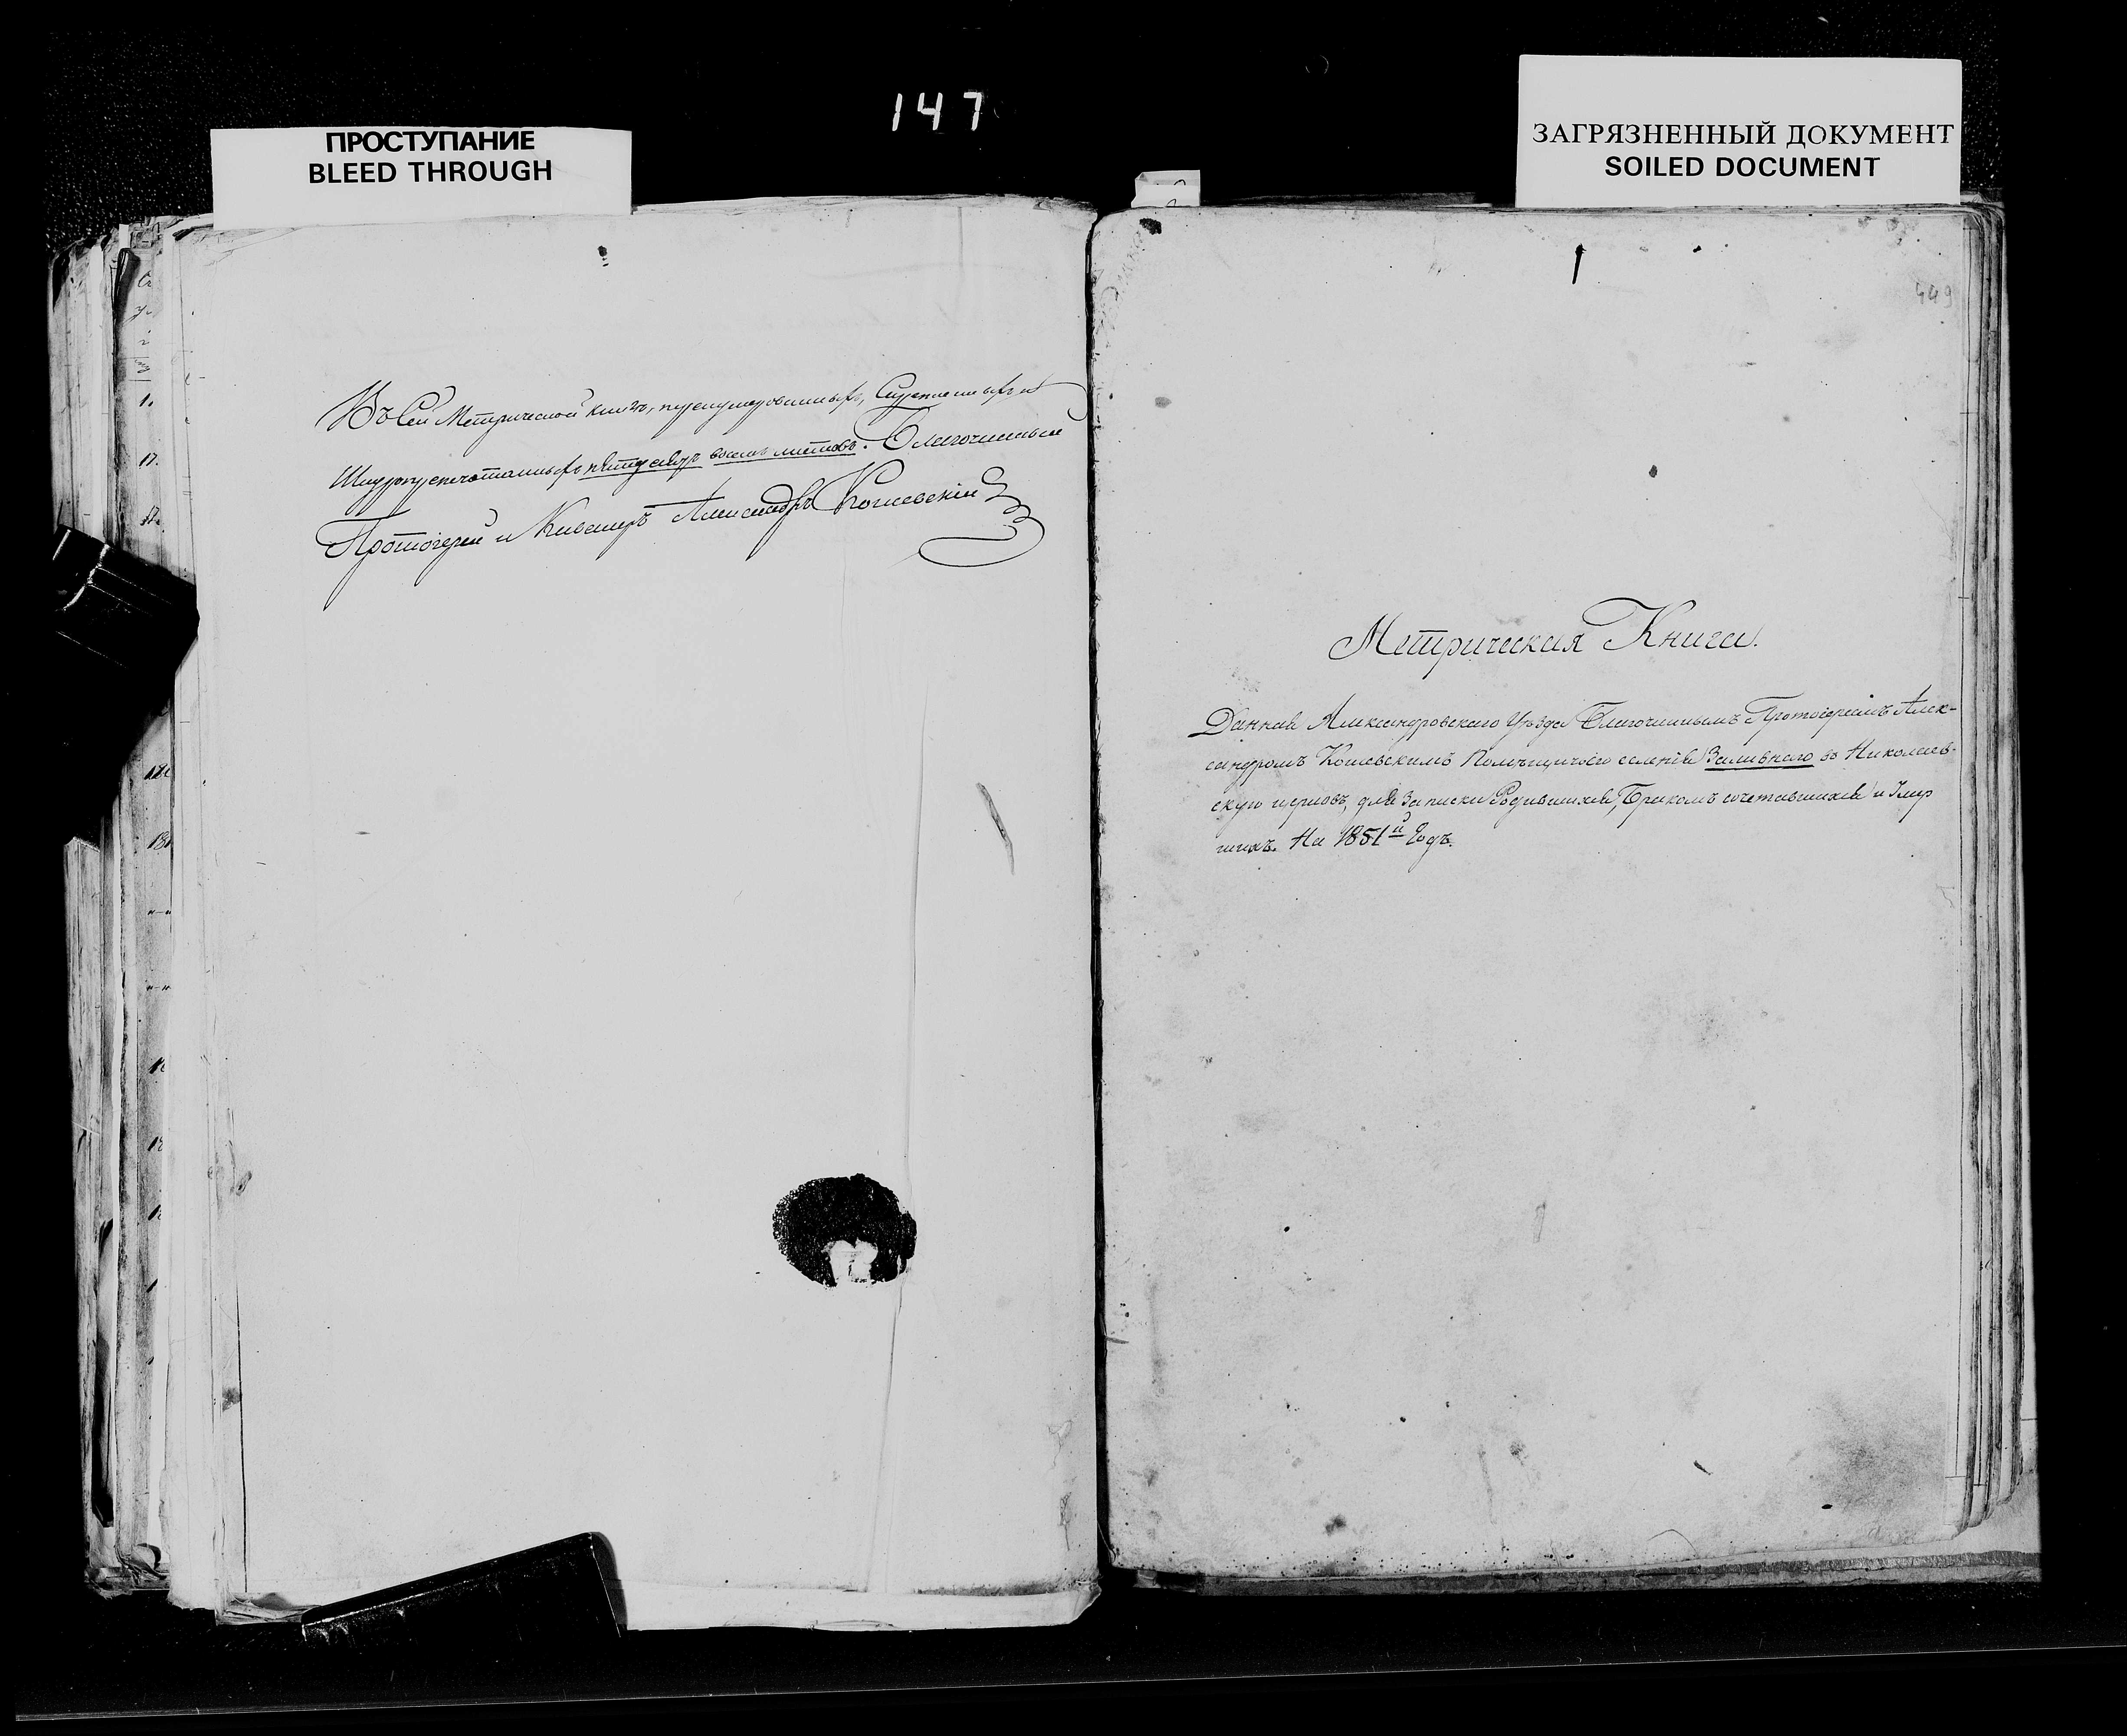 147
ПРОСТУПАНИЕ
BLEED THROUGH
ЗАГРЯЗНЕННЫЙ ДОКУМЕНТ
SOILED DOCUMENT
449
Въ Сей Метрической книгѣ, пренумерованныхъ, Скрепленныхъ и
Шнуропрепечатанныхъ восемь листовъ. Благочинный
Протоіерей и Кавалеръ Александръ Кошевскій
Метрическая Книга.
Данная Александровскаго Уѣзда Благочиннымъ Протоіереемъ Алек-
сандромъ Кошевскимъ Помѣщичьего селенія Заливнаго въ Николаев-
скую церковь, для Записки Родившихся, Бракомъ сочетавшихся и Умер
шихъ. На 1851й Годъ.